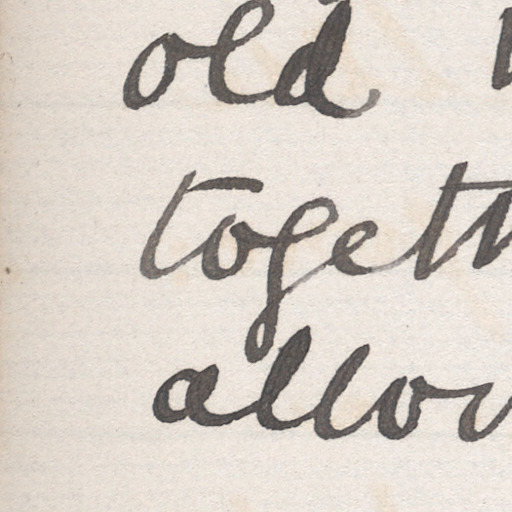 old
togeth
allow